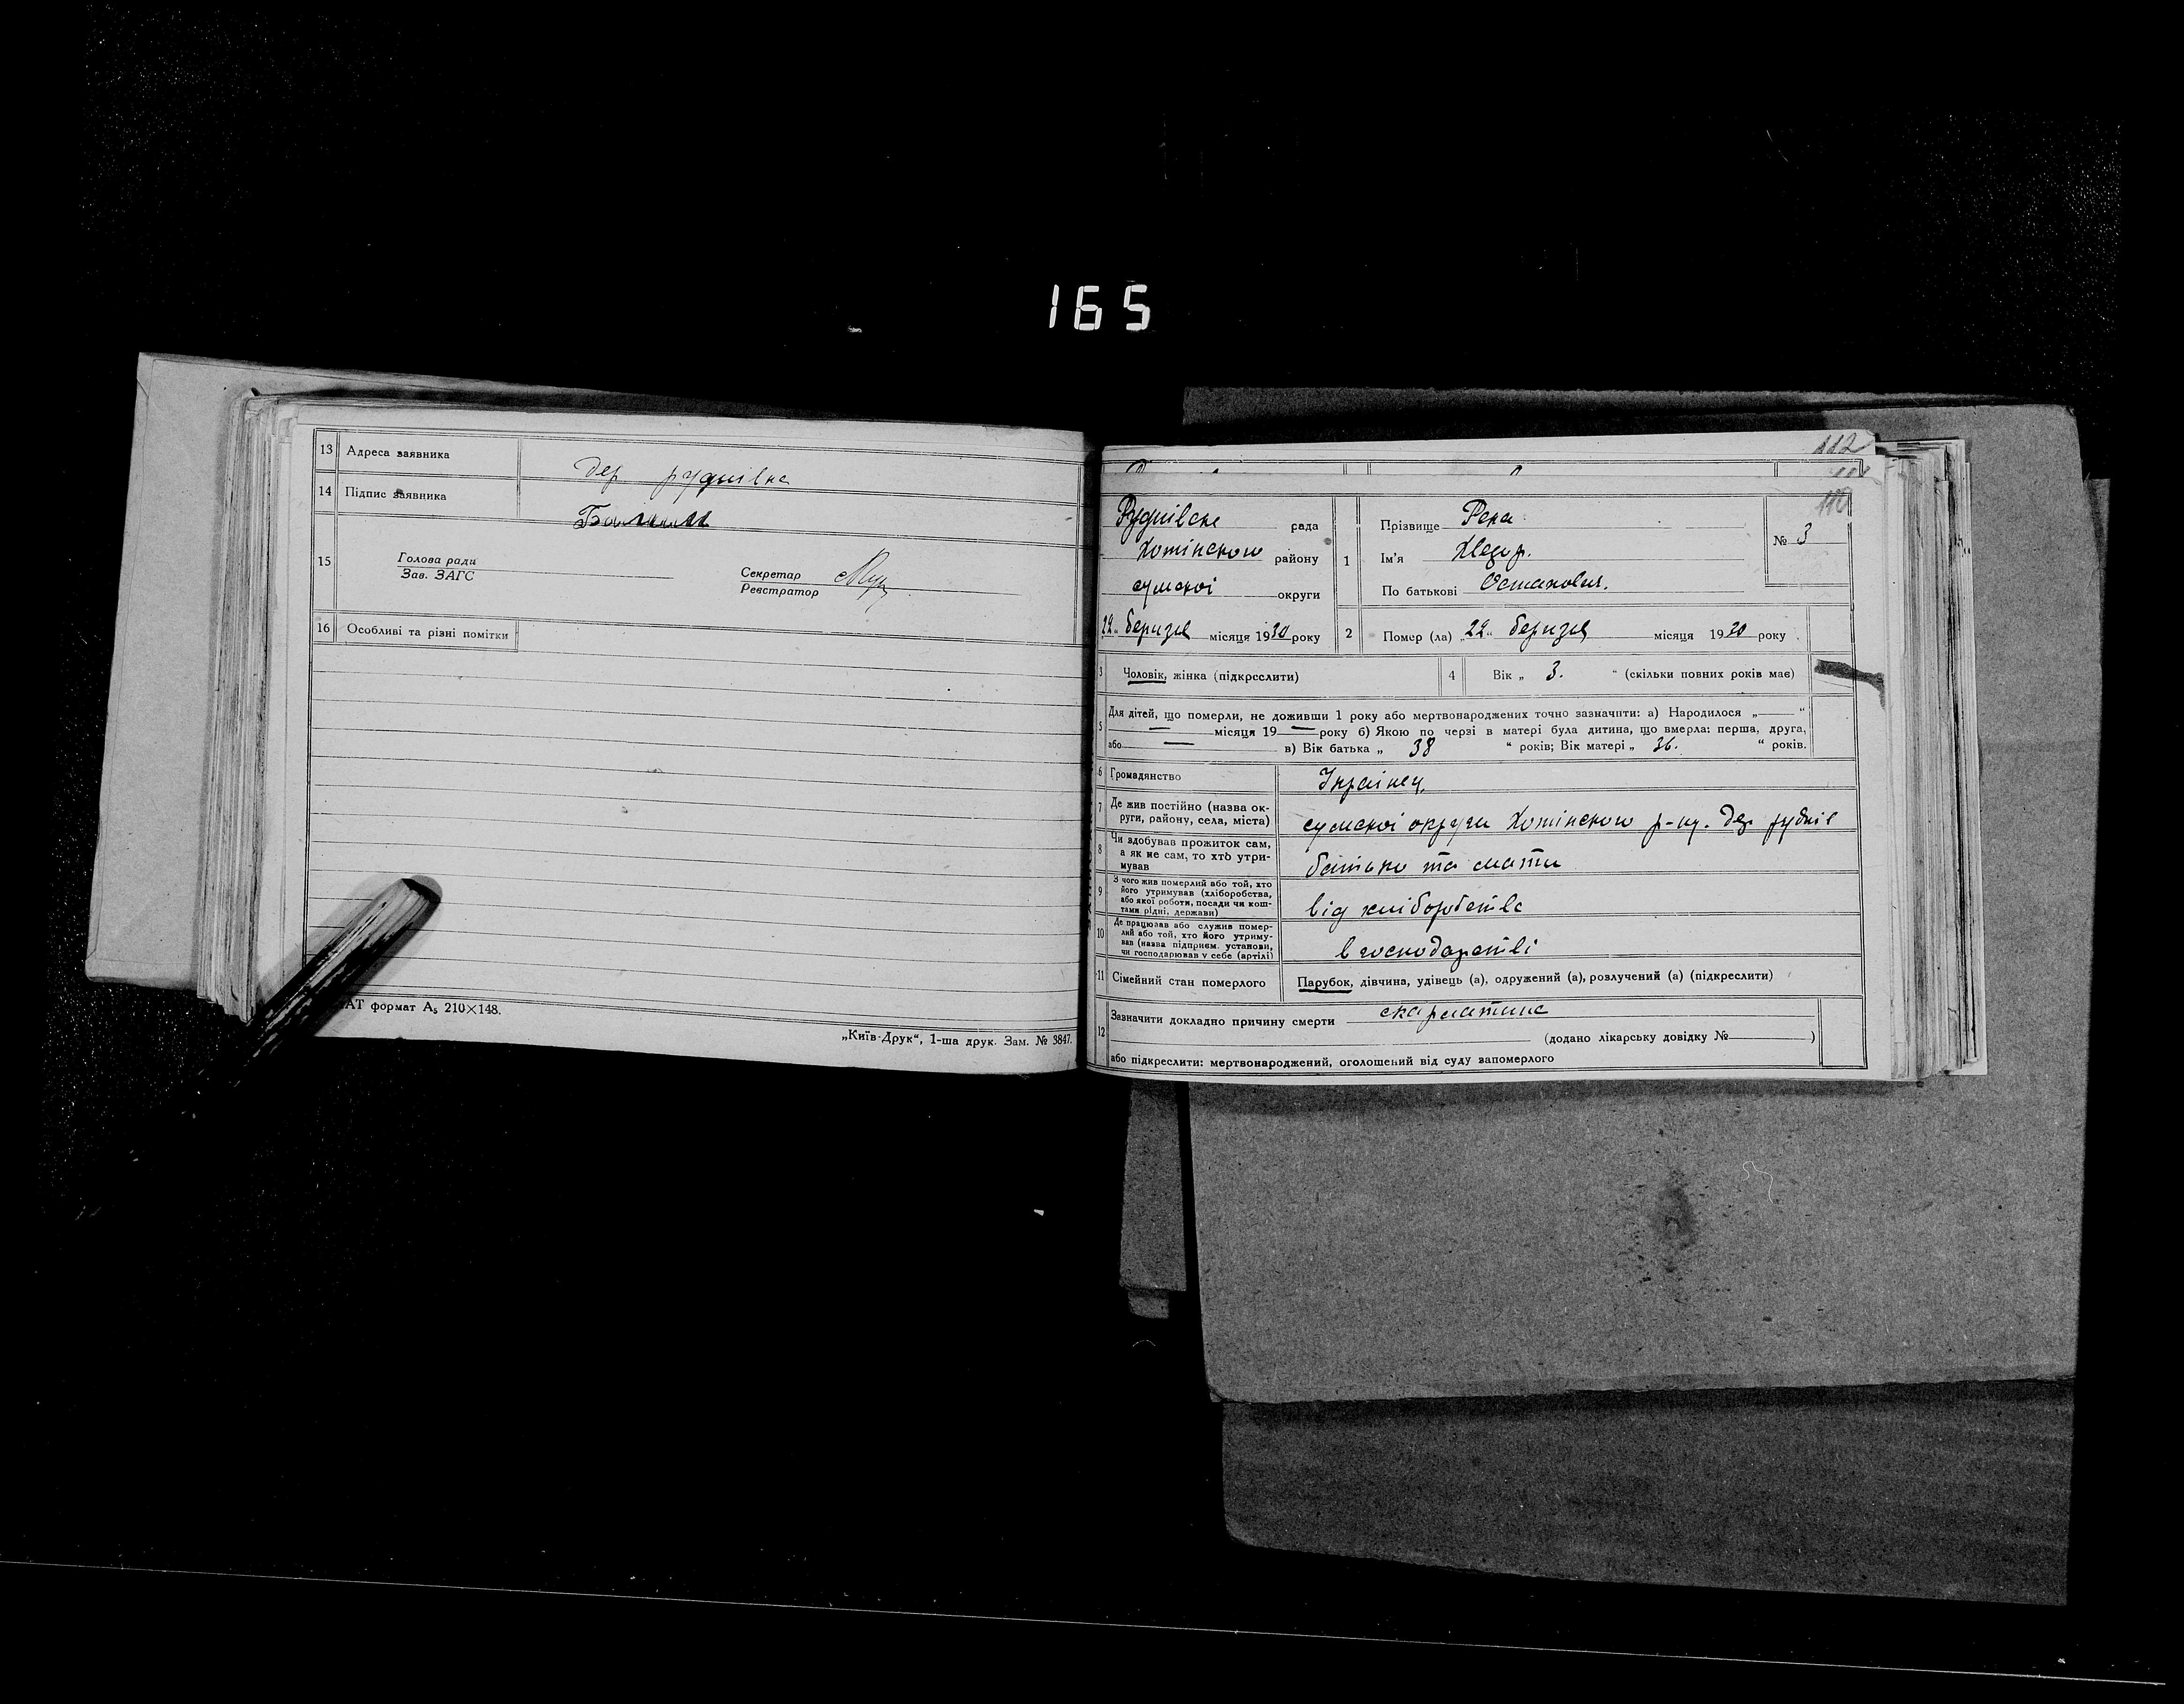 165
13 Адреса заявника дер руднівка
14 Підпис заявника
15 Голова ради
Зав. ЗАГС
Секретар
Реєстратор
16 Особливі та різні помітки
АТ формат А5 210×148.
„Київ-Друк“, 1-ша друк. Зам. № 3847.
112
110
Руднівська рада
Хотінского району
сумскої округи
22 „ березня місяця 1930 року
1 Прізвище Река
Ім'я Хведор.
По батькові Остапович.
№ 3
2 Помер (ла) „22“ березня місяця 1930 року
3 Чоловік, жінка (підкреслити)
4 Вік „ 3. “ (скільки повних років має)
5 Для дітей, що померли, не доживши 1 року або мертвонароджених точно зазначити: а) Народилося „— “
— місяця 19 — року б) Якою по черзі в матері була дитина, що вмерла: перша, друга,
або — в) Вік батька „ 38 “ років; Вік матері „ 36. “ років.
6 Громадянство Українец.
7 Де жив постійно (назва ок-
руги, району, села, міста) сумскої округи Хотінского р-ну. дер руднів
8 Чи здобував прожиток сам,
а як не сам, то хто утри-
мував батько та мати
9 З чого жив померлий або той, хто
його утримував (хліборобства,
або якої роботи, посади чи кош-
тами рідні, держави) від хліборобства
10 Де працював або служив помер-
лий або той, хто його утриму-
вав (назва підприєм. установи,
чи господарював у себе (артілі) в господарстві
11 Сімейний стан померлого Парубок, дівчина, удівець (а), одружений (а), розлучений (а) (підкреслити)
12 Зазначити докладно причину смерти скарлатина
(додано лікарську довідку № )
або підкреслити: мертвонароджений, оголошений від суду запомерлого